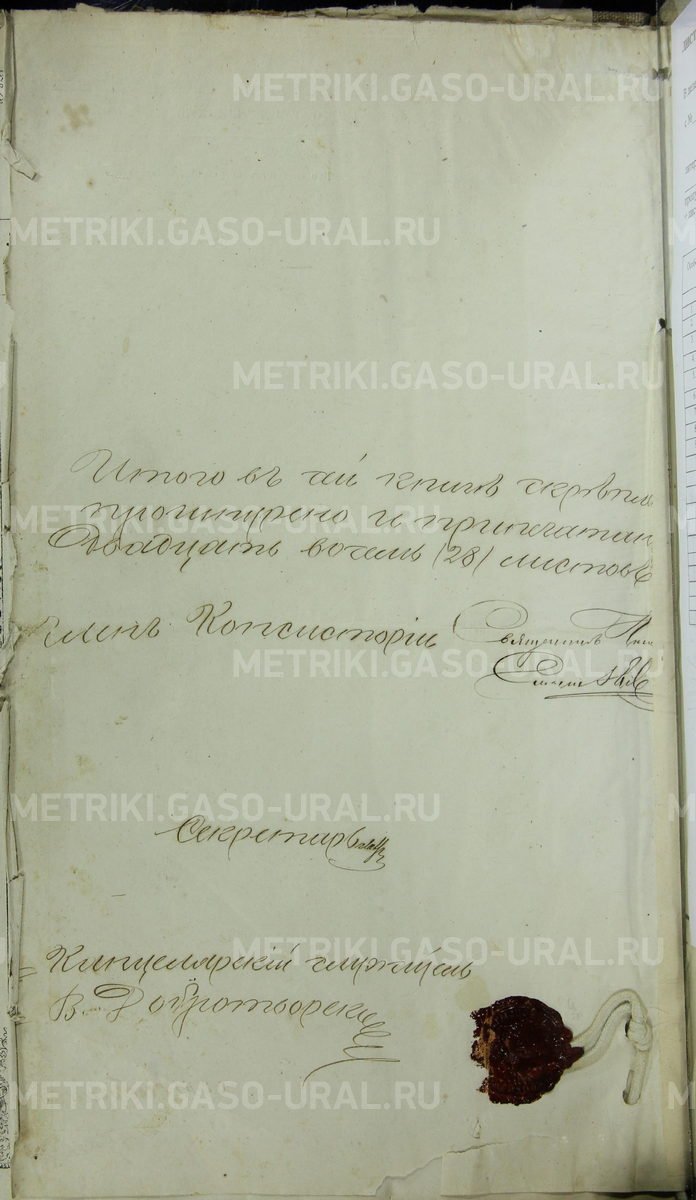 Итого въ сей книгѣ скрѣпле
прошнурено и припечатан
Двадцать восемь (28) листовъ
Членъ Консисторіи Священникъ
Секретарь
Канцелярскій служитель
В. Добротворскій
METRIKI.GASO-URAL.RU
METRIKI.GASO-URAL.RU
METRIKI.GASO-URAL.RU
METRIKI.GASO-URAL.RU
METRIKI.GASO-URAL.RU
METRIKI.GASO-URAL.RU
METRIKI.GASO-URAL.RU
METRIKI.GASO-URAL.RU